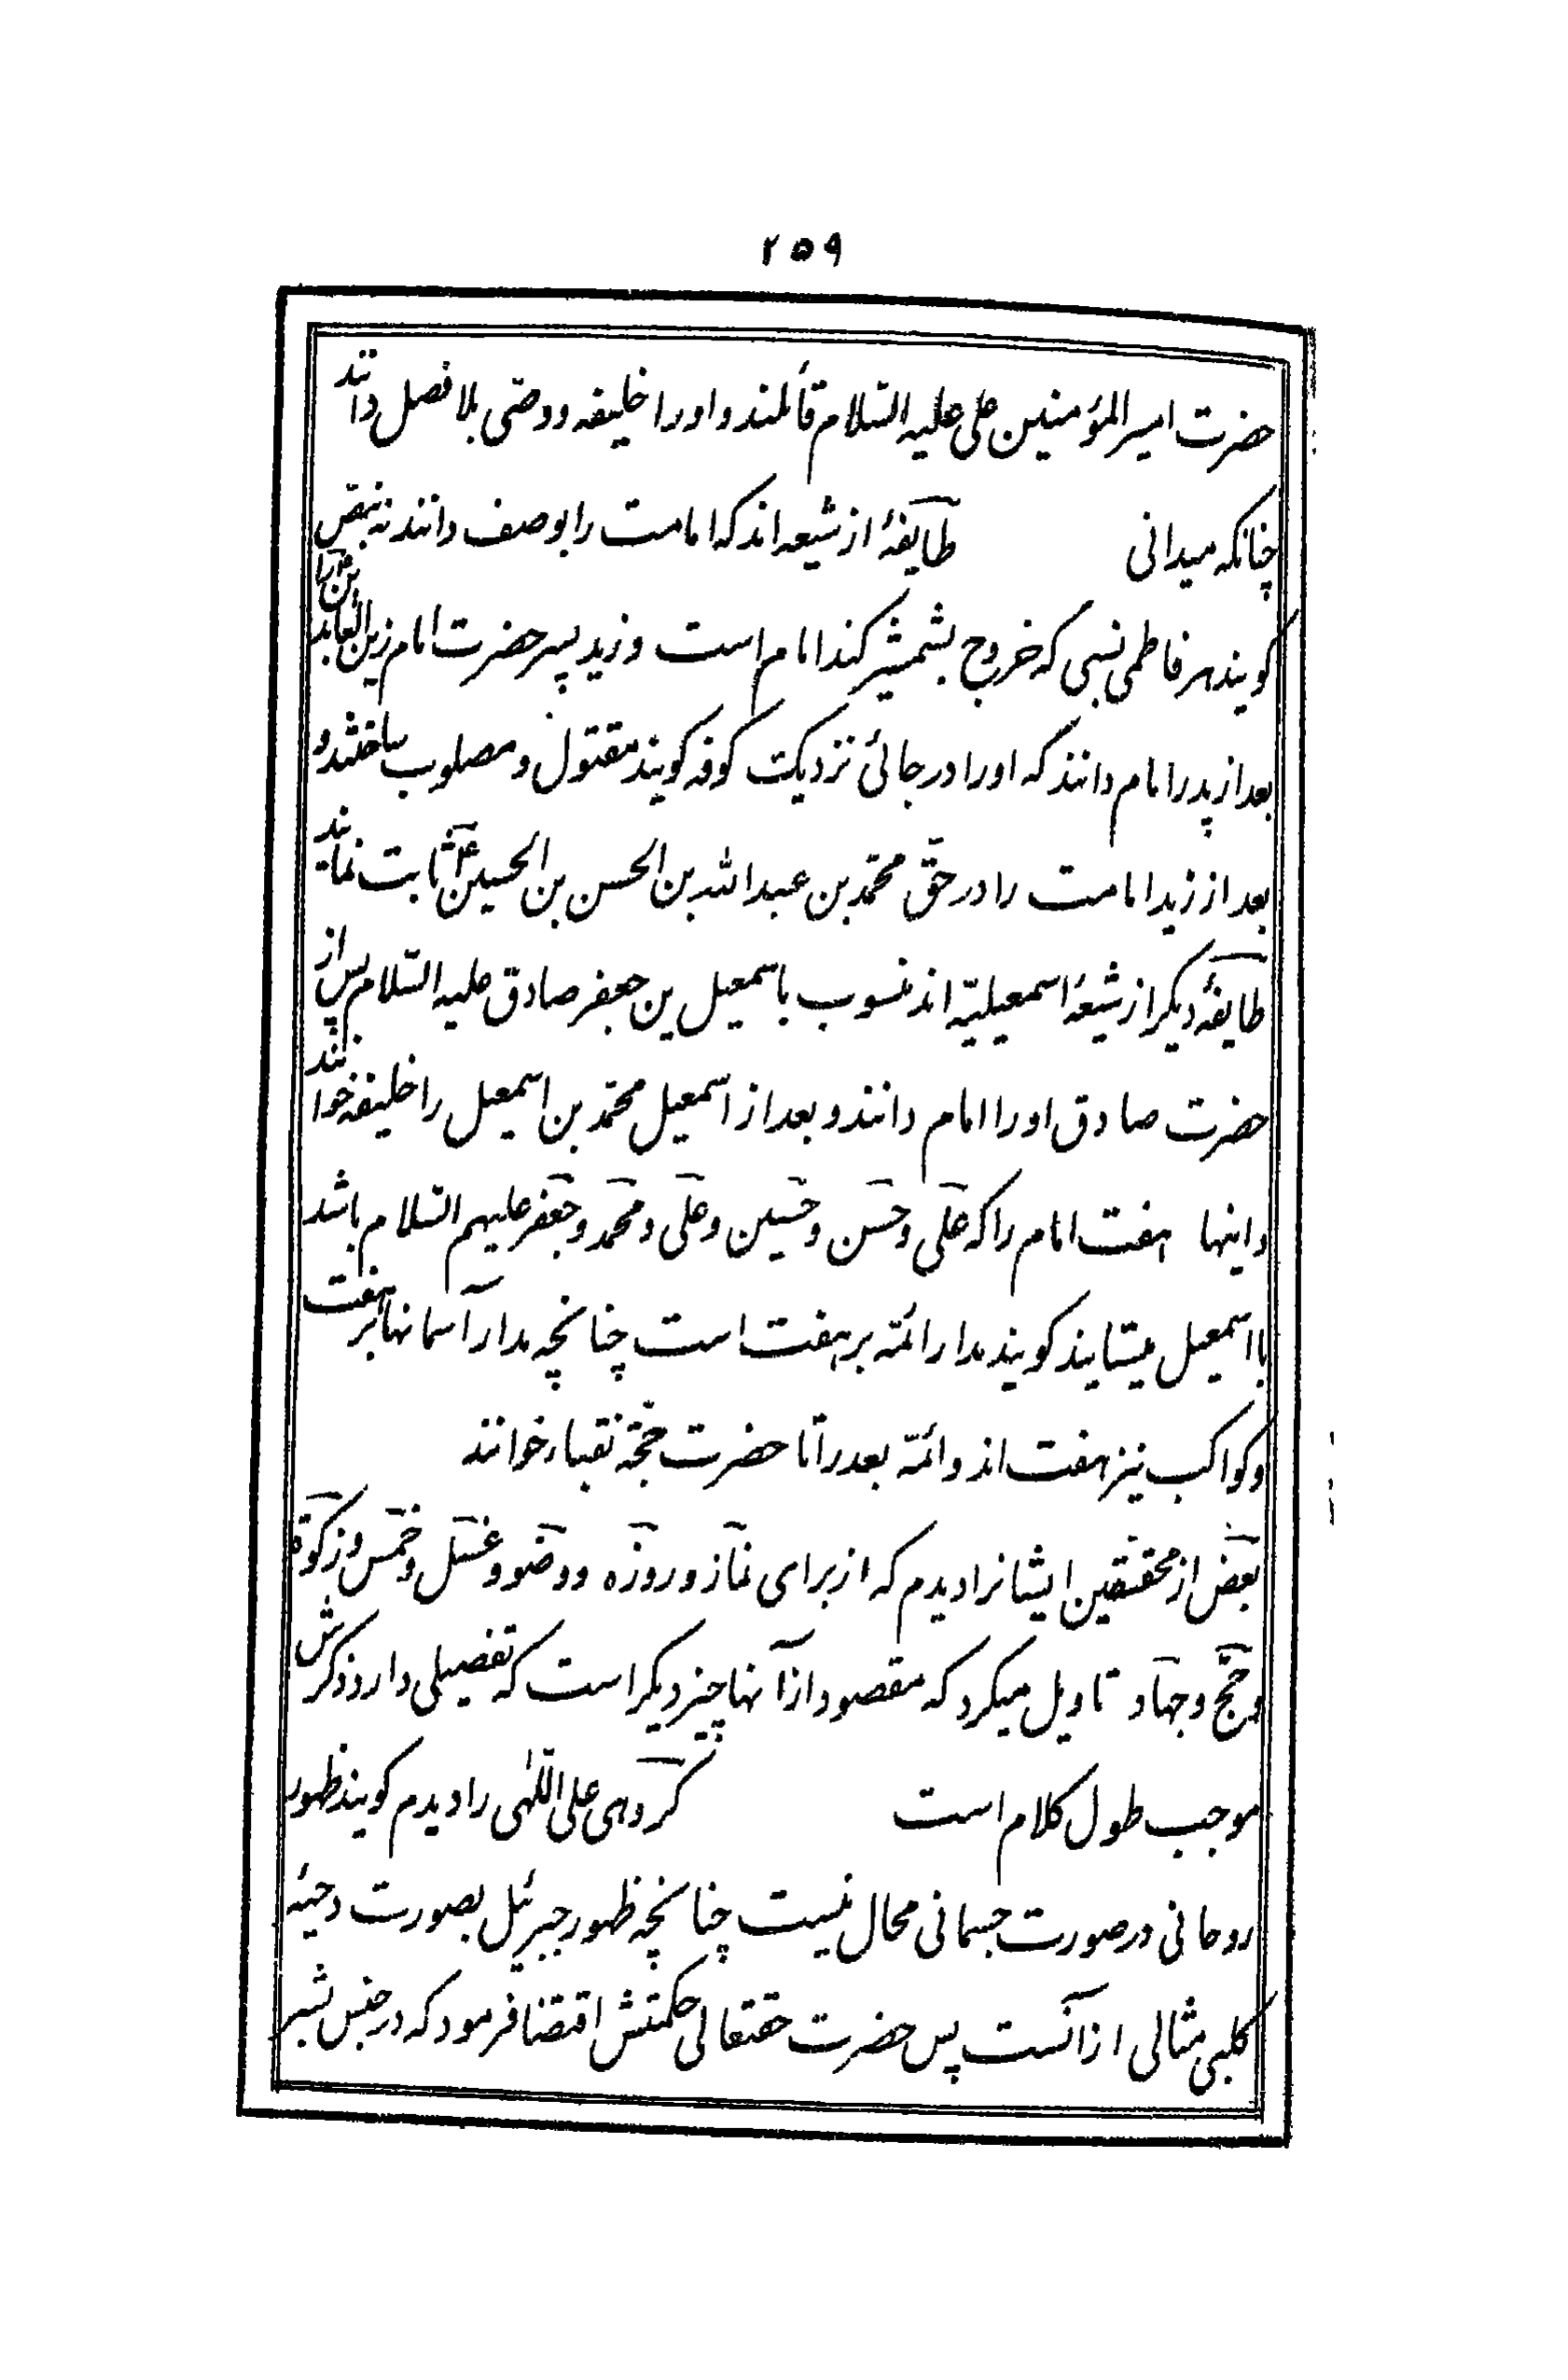 ۲۵۹
حضرت امیرالمؤمنین علی علیه السّلام قائلند و اورا خلیفه و وصّی بلا فصل دانند
چنانکه میدانی طایفهٔ از شیعه اند که امامت را بوصف دانند نه بنصّ
کویند هر فاطمی نسبی که خروج بشمشیر کند امام است و زید پسر حضرت امام زین العابدین را
بعد از پدر امام دانند که اورا در جائی نزدیک کوفه کویند مقتول و مصلوب ساختند و
بعد از زید امامت را در حقّ محمّد بن عبدالله بن الحسن بن الحسین ع ثابت نمایند
طایفهٔ دیکر از شیعهٔ اسمعیلیّه اند منسوب باسمعیل بن جعفر صادق علیه السّلام پس از
حضرت صادق اورا امام دانند و بعد از اسمعیل محمّد بن اسمعیل را خلیفه خوانند
و اینها هفت امام را که علی و حسن و حسین و علی و محمّد و جعفر علیهم السّلام باشد
با اسمعیل میستایند کویند مدار ائمّه بر هفت است چنانچه مدار آسمانها بر هفت
و کواکب نیز هفت اند و ائمّه بعد را تا حضرت حجّة نقباء خوانند
بعض از محقّقین ایشانرا دیدم که از برای نماز و روزه و وضو و غسل و خمس و زکوة
و حجّ و جهاد تاویل میکرد که مقصود از آنها چیز دیکر است که تفصیلی دارد و ذکرش
موجب طول کلام است کروهی علی اللّهی را دیدم کویند ظهور
روحانی در صورت جسمانی محال نیست چنانچه ظهور جبرئیل بصورت دحیّه
کلبی مثالی از آنست پس حضرت حقتعالی حکمتش اقتضا فرمود که در جنس بشر